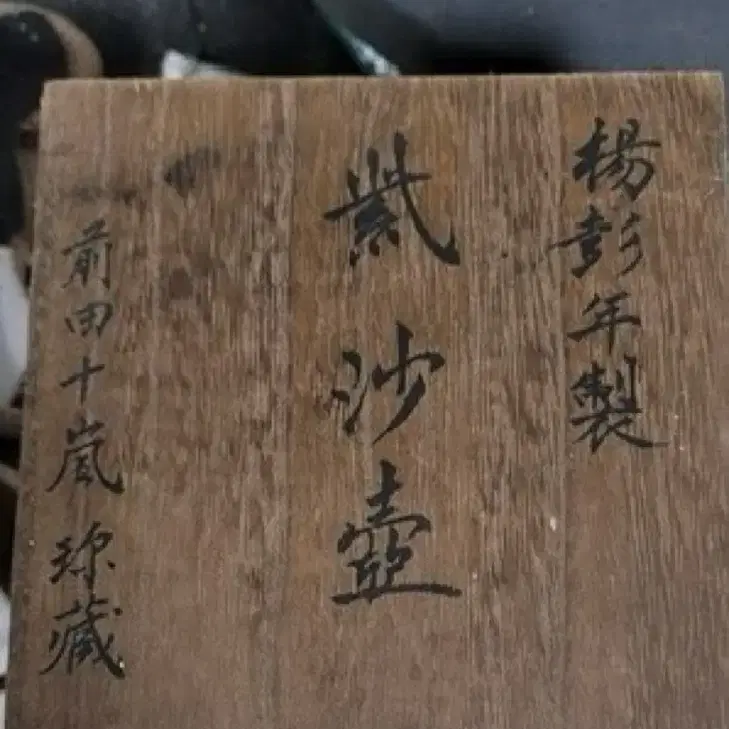 楊彭年製
紫沙壺
前田十嵐珎藏